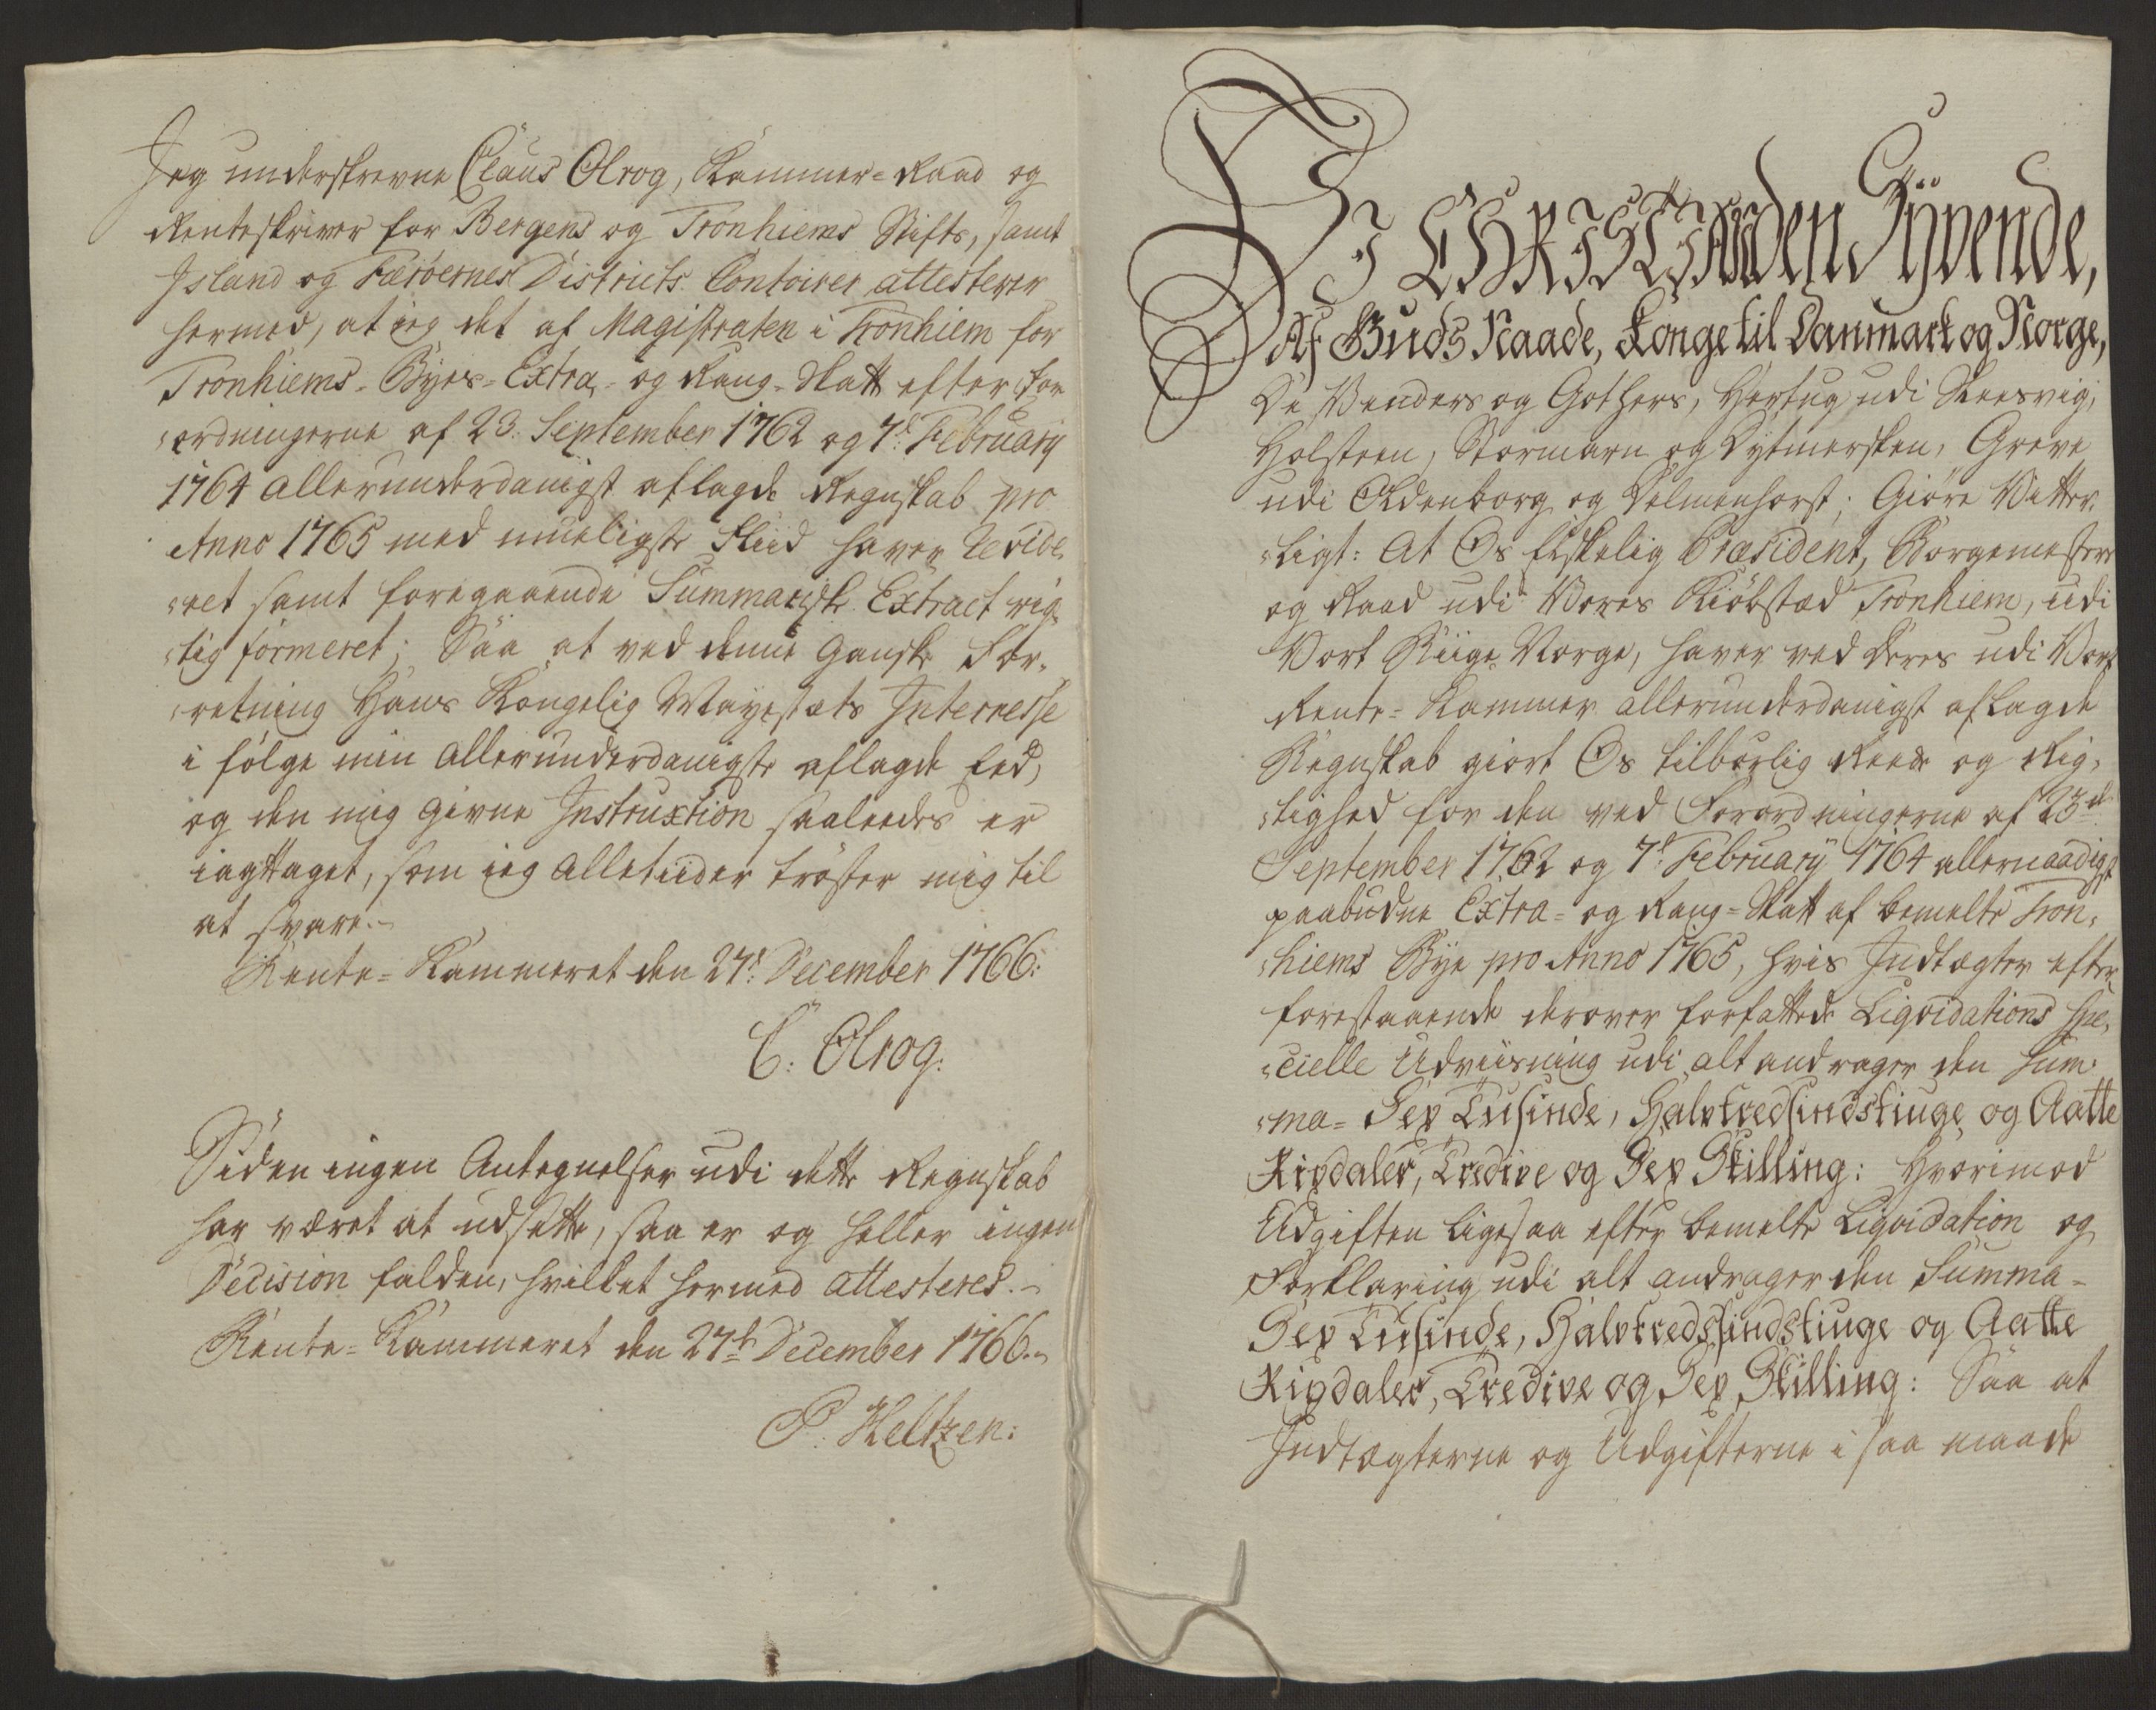 Jeg underskrevne Claus Olrog, Kammer-Raad og
Renteskriver for Bergens og Tronhiems Stifts, samt
Island og Færöernes Districts Contoirer attesterer
hermed, at jeg det af Magistraten i Tronhiem for
Tronhiems-Byes-Extra- og Rang-Skatt efter For
ordningerne af 23. September 1762 og 7de February
1764 allerunderdanigst aflagde Regnskab pro
Anno 1765 med mueligste Fliid haver Revide-
ret samt foregaaende Summariske Extract rig-
tig formeret; Saa at ved denne gandske For-
retning Hans Kongelig Mayestæts Interresse
i følge min allerunderdanigste aflagde Eed,
og den mig givne Instruxtion saaleedes er
iagttaget, som jeg alletiider trøster mig til
at svare.
Rente-Kammeret den 27de December 1766.
C. Olrog.
Siden ingen Antegnelser udi dette Regnskab
har været at udsette, saa er og heller ingen
Decision falden, hvilket hermed attesteres.
Rente-Kammeret den 27de December 1766.
P. Heltzen.
Vi CHRISTIAN den Syvende,
Af Guds Naade, Konge til Danmark og Norge,
De Venders og Gothers, Hertug udi Sleesvig,
Holsteen, Stormarn og Dytmersken, Greve
udi Oldenborg og Delmenhorst; Giöre Vitter-
ligt: At Os Elskelig Præsident, Borgemestere
og Raad udi Vores Kiöbstæd Tronhiem, udi
Vort Riige Norge, haver ved Deres udi Vort
Rente-Kammer allerunderdanigst aflagde
Regnskab giort Os tilbørlig Reede og Rig-
tighed for den ved Forordningerne af 23de
September 1762 og 7de February 1764 allernaadigst
paabudne Extra- og Rang-Skatt af bemelte Tron-
hiems Bye pro Anno 1765, hvis Indtægter efter
forestaaende derover forfattede Liqvidations Spe-
cielle Udviisning udi alt andrager den Sum-
ma- Sex Tusinde, Halvtredsindstiuge og Aatte
Rixdaler, Tredive og Sex Skilling: Hvorimod
Udgiften ligesaa efter bemelte Liqvidation og
Forklaring udi alt andrager den Summa-
Sex Tusinde, Halvtredssindstiuge og Aatte
Rixdaler, Tredive og Sex Skilling: Saa at
Indtægterne og Udgifterne i saa maade